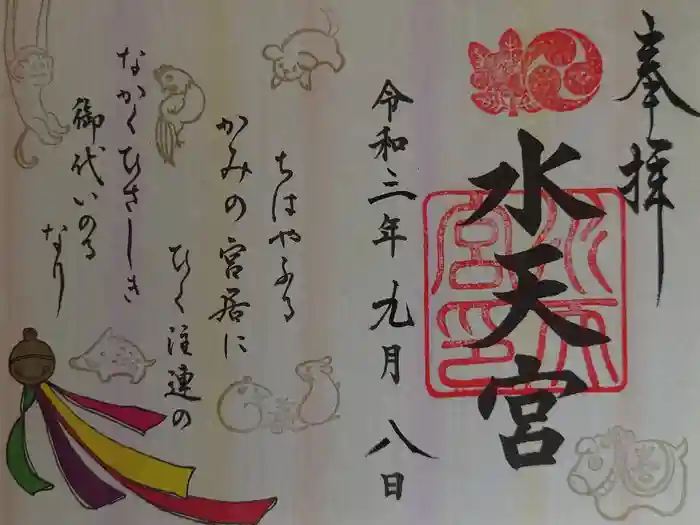 奉拝
水天宮
令和三年九月八日
ちはやふる
かみの宮居に
ひく注連の
なかくひさしき
御代いのるなり